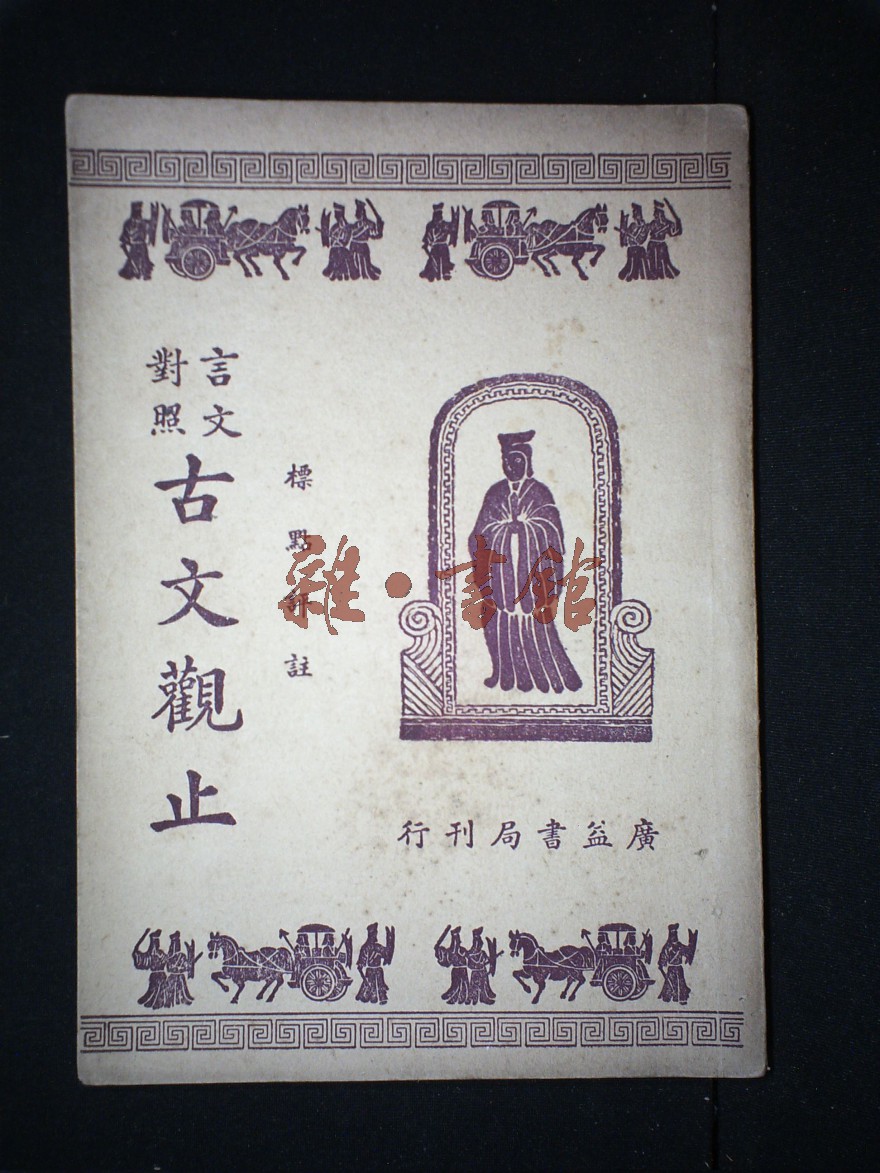 言文
對照
古文觀止
標點評註
廣益書局刊行
雜·書館